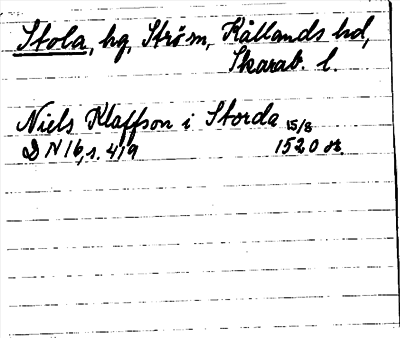 Stola, hg, Ström, Kållands hd,
Skarab. l.
Niels Klaffson i Storda 15/8
D N 16, s. 419 1520 or.